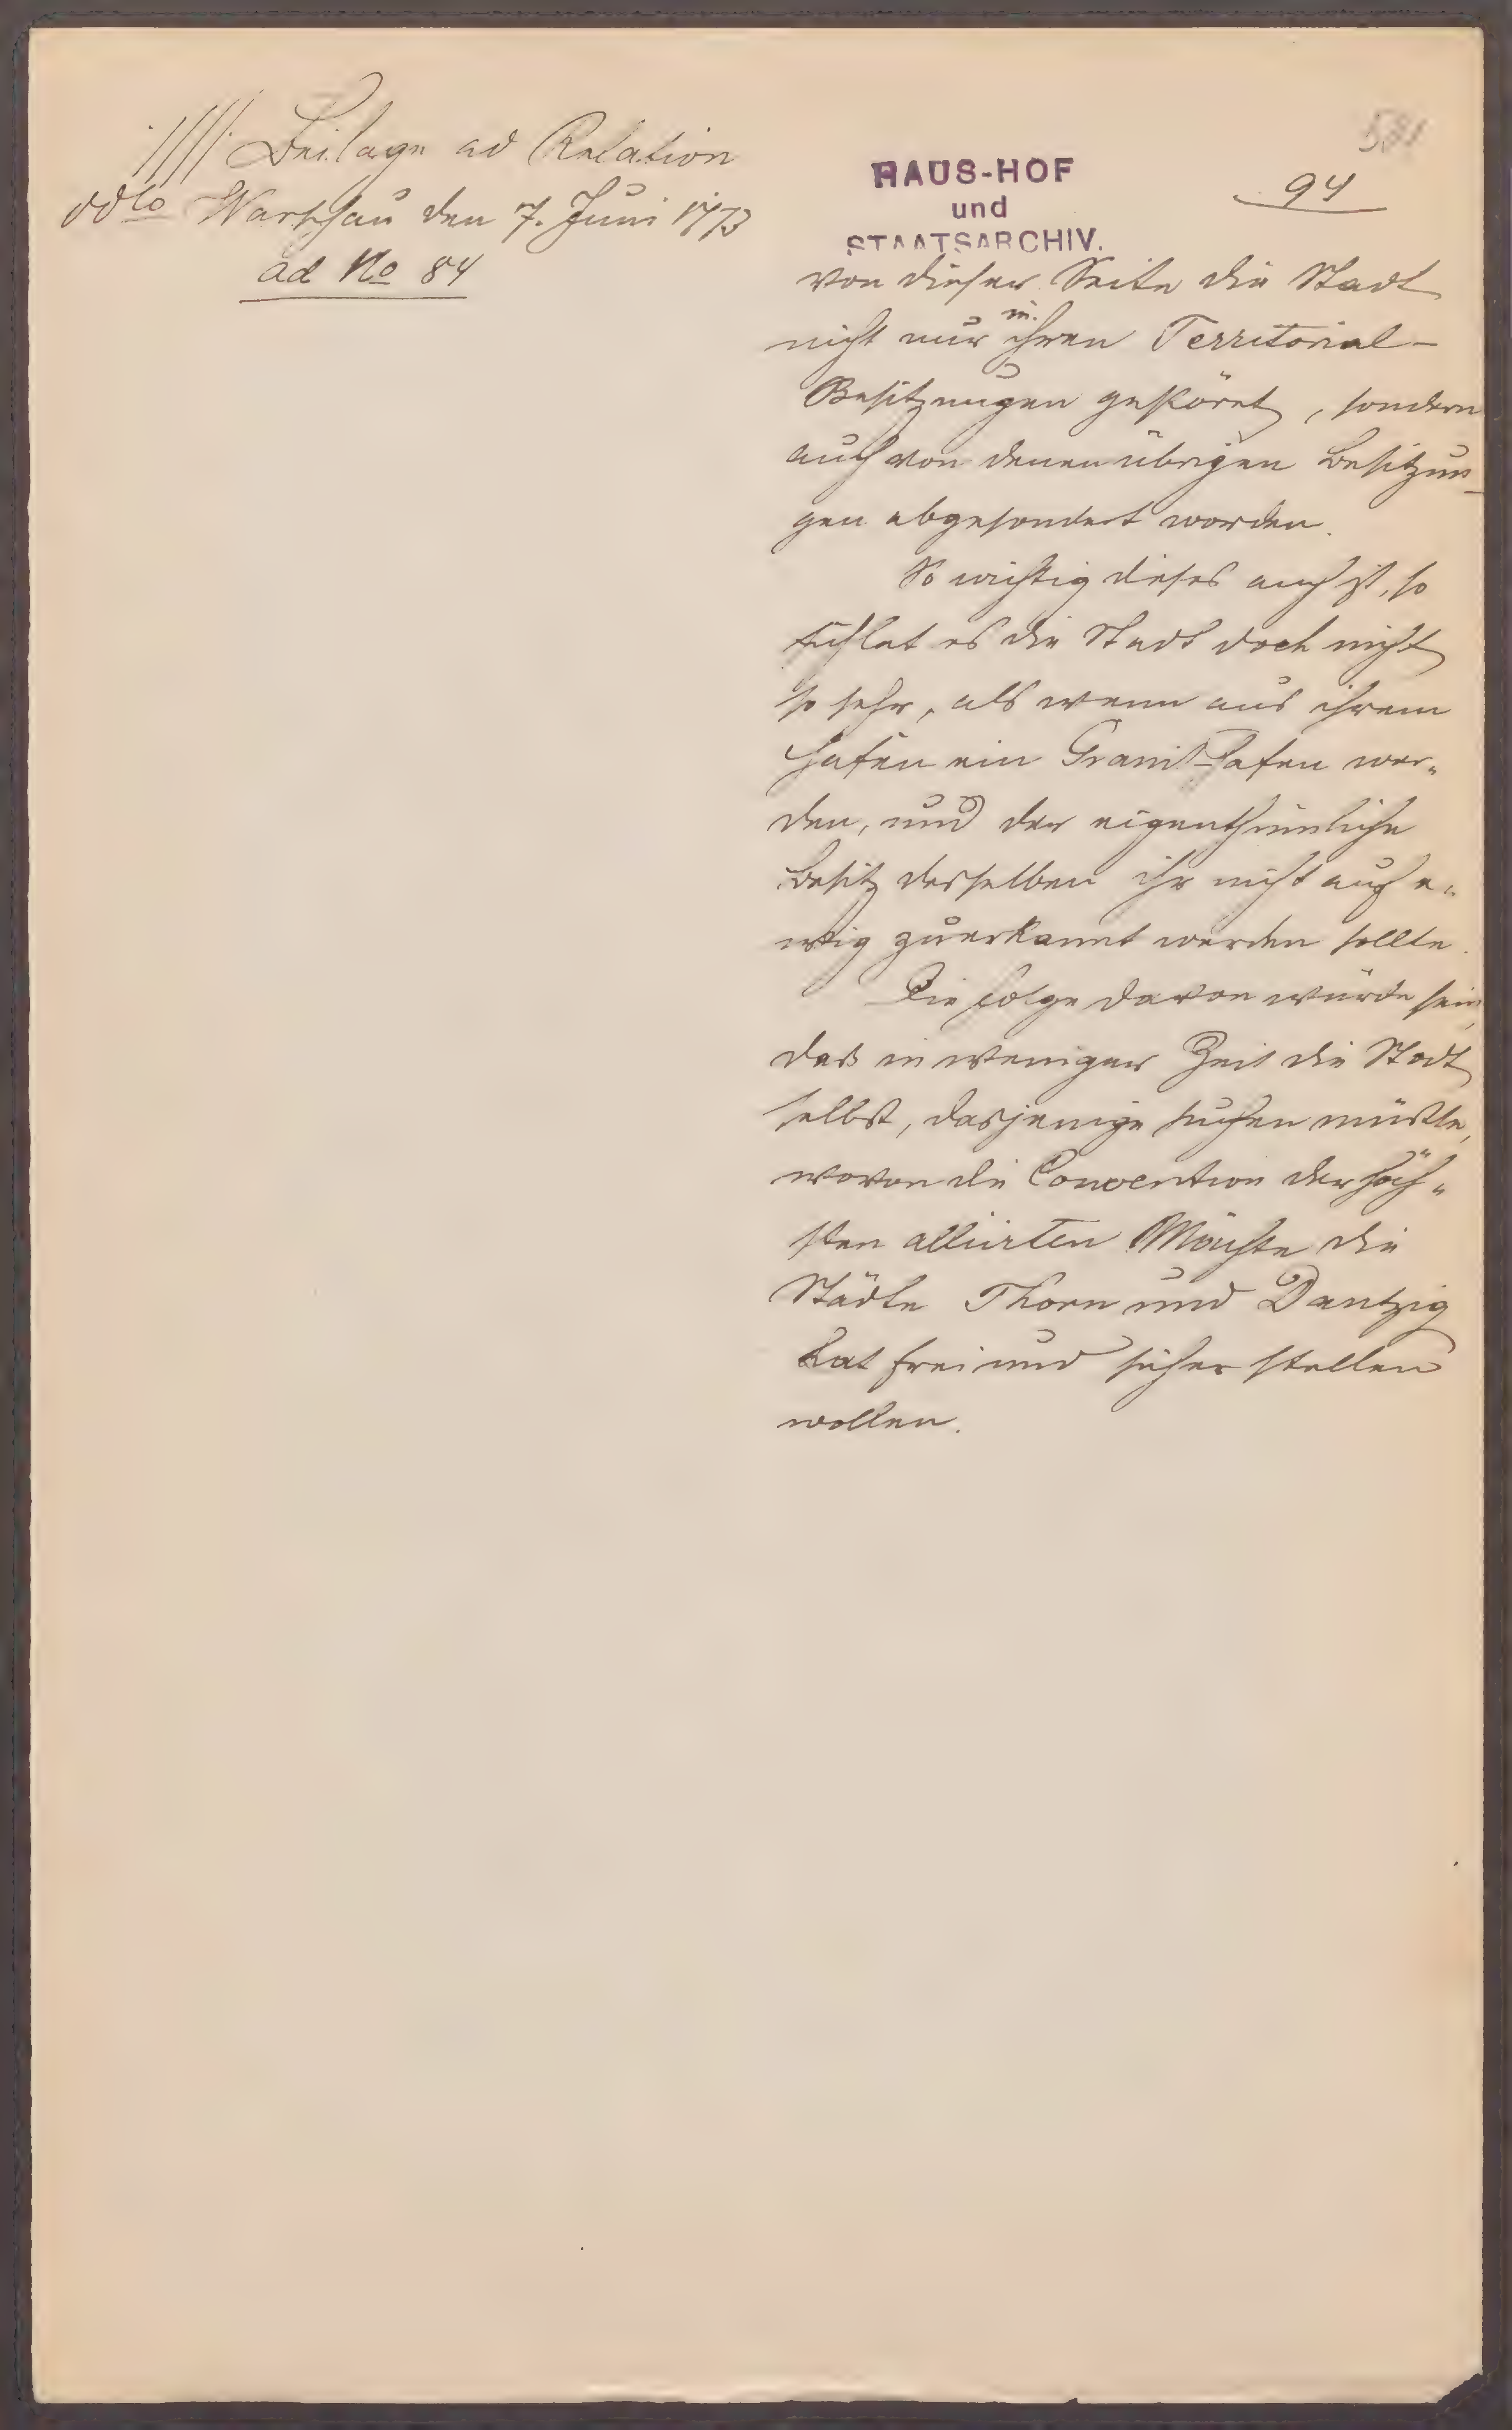 ·/||/· Beilage ad Relation
ddto Warschau den 7. Juni 1773
ad No 84
HAUS-HOF
und
STAATSARCHIV.
94
von dieser Seite die Stadt
nicht nur in ihren Territorial-
Besitzungen gestöret, sondern
auch von denen übrigen Besitzun-
gen abgesondert worden.
So wichtig dieses auch ist, so
fühlet es die Stadt doch nicht
so sehr, als wenn aus ihrem
Hafen ein Hafen wer-
den, und der eigenthümliche
Besitz desselben ihr nicht auf e-
wig zuerkannt werden sollte.
Die Folge davon würde sein,
daß in weniger Zeit die Stadt
selbst, dasjenige suchen müßte,
wovon die Convention der höch-
sten alliirten Mächte die
Städte Thorn und Dantzig
hat frei und sicher stellen
wollen.